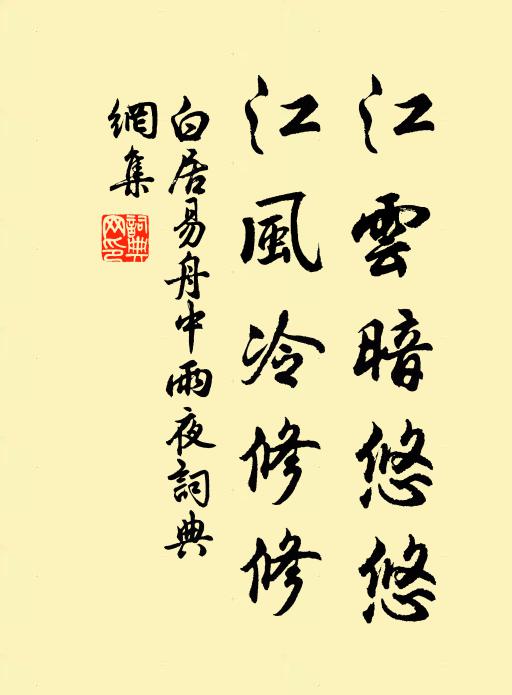 江雲暗悠悠
江風冷修修
白居易舟中雨夜詞典
網集
詞典
网印